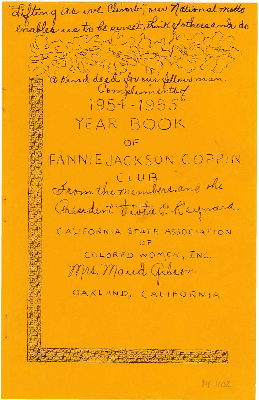 Lifting as we Climb, our National motto
enables us to be quiet, think of others and do
a kind deed for our fellow man.
Compliments of
1954-1955
YEAR BOOK
OF
FANNIE JACKSON COPPIN
CLUB
From the members and the
President
CALIFORNIA STATE ASSOCIATION
OF
COLORED WOMEN, INC.
Mrs. Maud Gibson
OAKLAND, CALIFORNIA